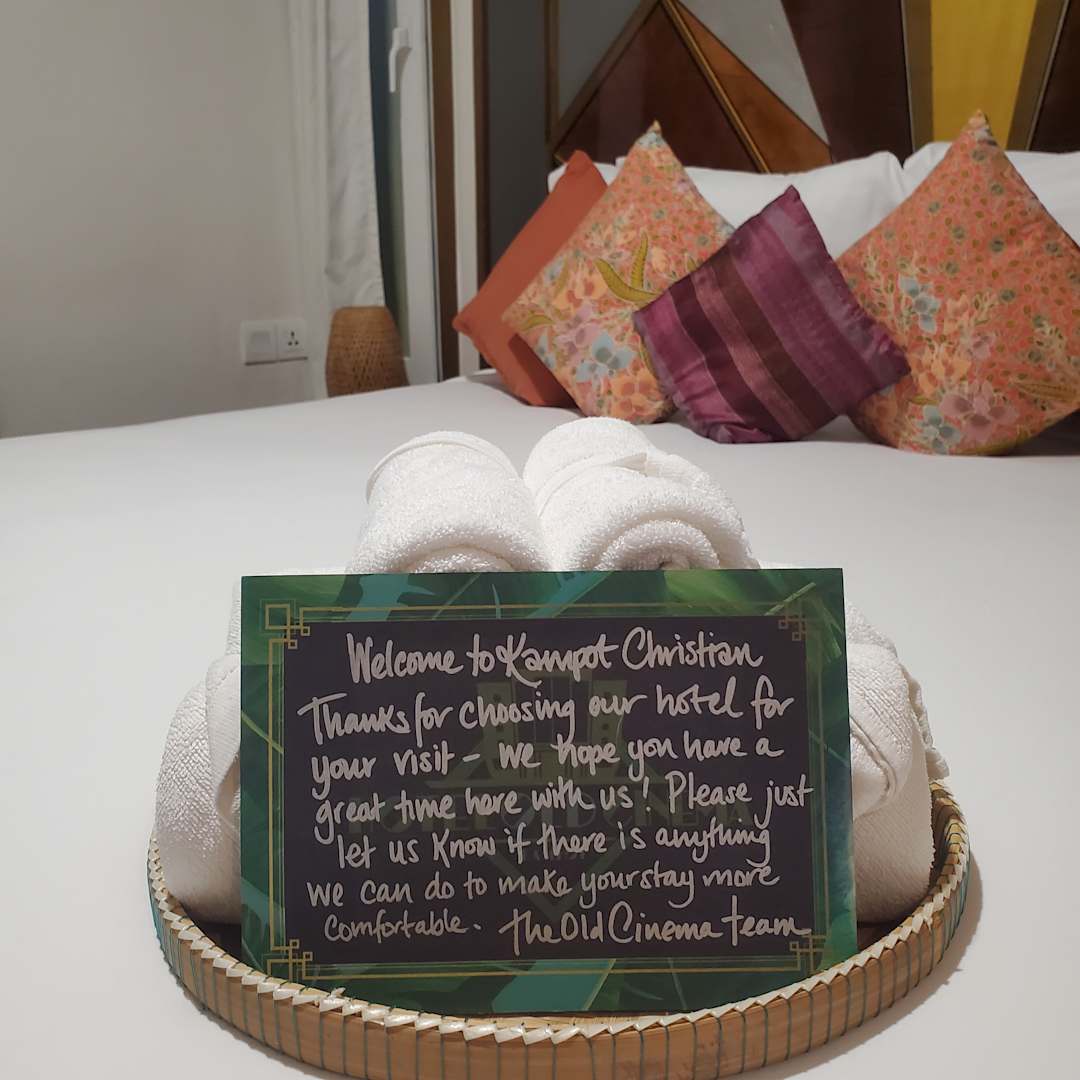 Welcome to Kampot Christian
Thanks for choosing our hotel for
your visit - we hope you have a
great time here with us! Please just
let us know if there is anything
we can do to make your stay more
comfortable. The Old Cinema team